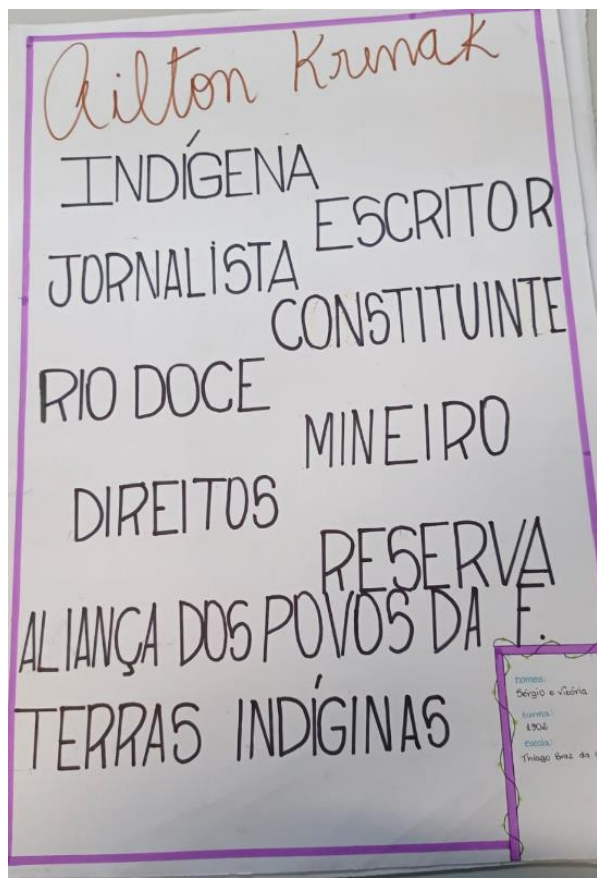 Ailton Krenak
INDÍGENA
ESCRITOR
JORNALISTA
CONSTITUINTE
RIO DOCE
MINEIRO
DIREITOS
RESERVA
ALIANÇA DOS POVOS DA F.
TERRAS INDÍGINAS
nomes:
Sérgio e Vitória
turma:
1902
escola:
Thiago Braz da